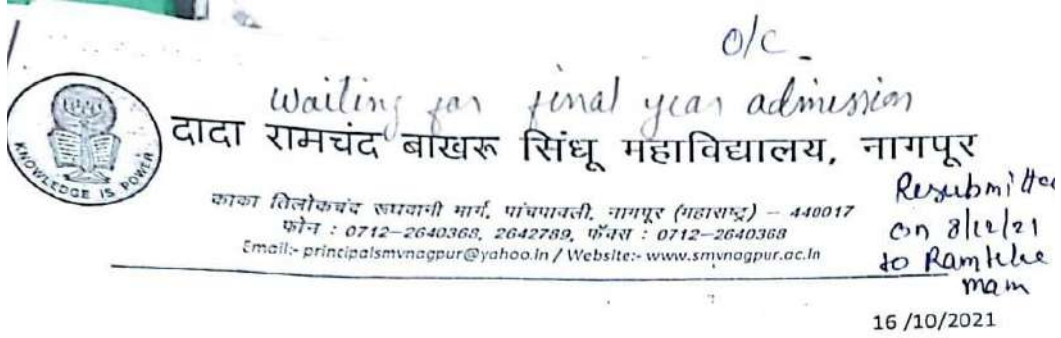 O/C
waiting for final year admission
KNOWLEDGE IS POWER
दादा रामचंद बाखरू सिंधू महाविद्यालय, नागपूर
काका तिलोकचंद रूघवानी मार्ग, पांचपावली, नागपूर (महाराष्ट्र) – 440017
फोन : 0712–2640368, 2642789, फॅक्स : 0712–2640368
Email:- principalsmvnagpur@yahoo.in / Website:- www.smvnagpur.ac.in
Resubmitted
on 8/12/21
to Ramteke
mam
16 /10/2021